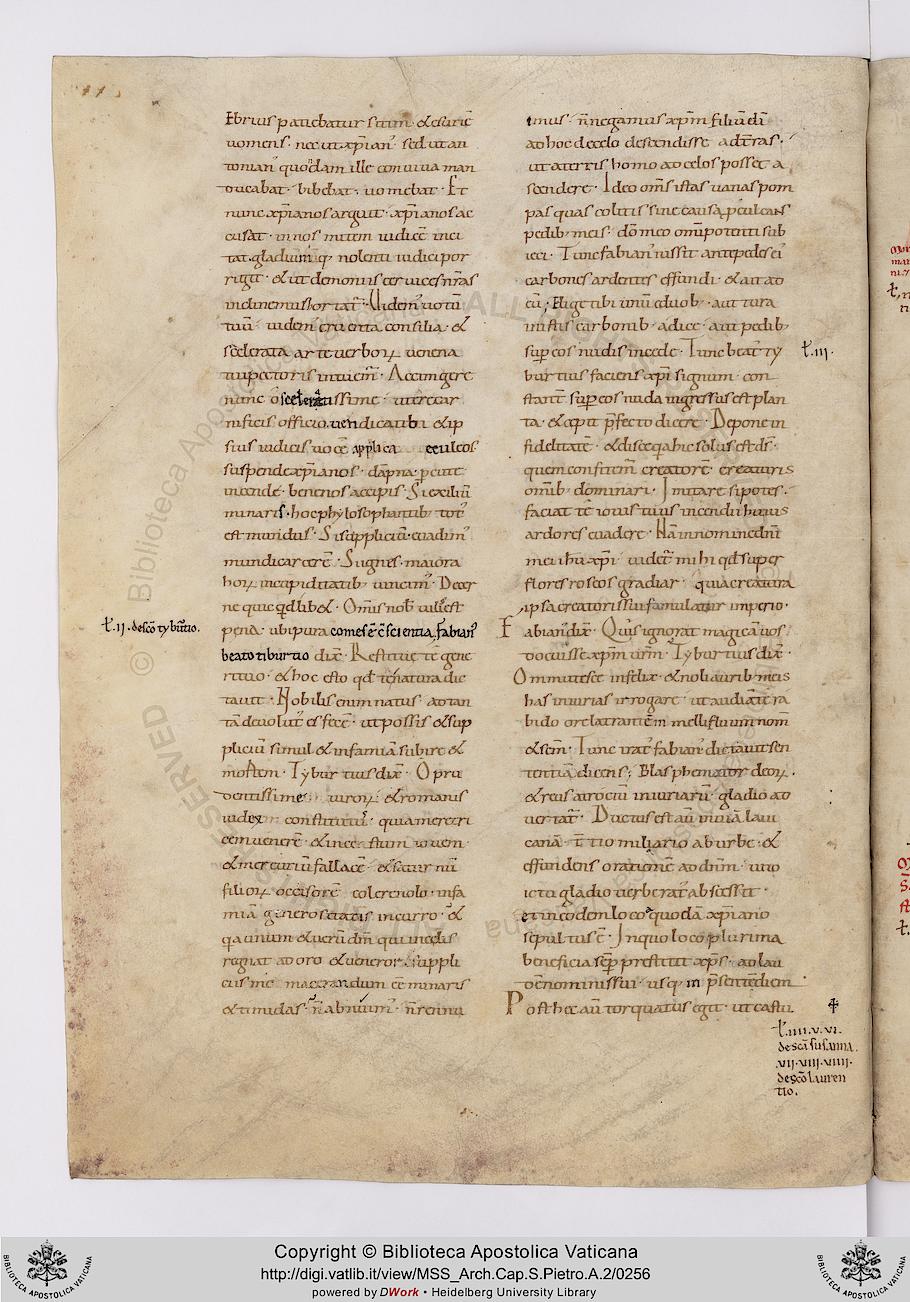 Ebrius patiebatur sitim · & esurie
uomens · nec ut xp̄ian' sed ut an
tonian' quodam ille conuiua man
ducabat · bibebat · uomebat · Et
nunc xp̄ianos arguit · xp̄ianos ac
cusat · in nos mitem iudicē inci
tat · gladium q; nolenti iudici por
rigit · & ut demoniis ceruices nr̄as
inclinemus hortat̄ · Uidem' uotū
tuū uidem' cruenta consilia · &
scelerata arte uerboꝝ uenena
tui pectoris intuem̄ · Accingere
nunc o sceleratissime · ut
nificis officio uendicati & ip
sius iudicis uocē applica eculeo
suspende xp̄ianos · dāpna · pcute
incende · bene nos accipis · Si exiliū
minaris · hoc phylosophantib; tot'
est mundus · Si suppliciū · euadim'
mundi carcerē · Si ignes · maiora
horꝝ in cupiditatib; uincim' · Decer
ne quicqd lib& · Om̄is nob̄ uilis est
pena · ubi pura comes ē cscientia · fabian'
beato tiburtio dix̄ · Restitue te gene
ri tuo · & hoc esto qd te natura dic
tauit · Nobilis enim natus · ad tan
ta deuolut' es fece · ut possis & sup
pliciū simul & infamiā subire &
mortem · Tyburtius dix̄ · O pru
dentissime uiroꝝ & romanis
iudex constitutus · quia meretri
cem uenerē · & incestum iouem
& mercuriū fallacē · & saturnū
filioꝝ occisorē colere nolo · infa
miā generositatis incurro · &
qa unum & uerū dm̄ qui in celis
regnat adoro & ueneror · suppli
ciis me macerandum ee minaris
& timidas · n̄ abnuim' · n̄ renui
imus · n̄ negamus xp̄m filiū dī
ad hoc de celo descendisse ad tr̄as ·
ut a terris homo ad celos posset a
scendere · Ideo om̄s istas uanas pom
pas quas colitis sine causa pculcans
pedib; meis · dō meo om̄ipotenti sub
ieci · Tunc fabian' iussit ante pedes ei'
carbones ardentes effundi · & ait ad
eū ; Elige tibi unū e duob; · aut tura
in istis carbonib; adice · aut pedib;
sup eos nudis incede · Tunc beat' ty
burtius faciens xp̄i signum con
stantē sup eos nuda ingressus est plan
ta · & cepit p̄fecto dicere · Depone in
fidelitatē · & disce qa hic solus est ds̄ ·
quem confitem̄ creatorē creaturis
omīb; dominari · Imitare si potes ·
faciat te iouis tuus incendii huius
ardores euadere · Nā in nomine dn̄i
mei ihu xp̄i uidet̄ mihi qd super
flores roseos gradiar · quia creatura
ipsa creatoris sui famulatur imperio ·
Fabian' dix̄ · Quis ignorat magicā uos
docuisse xp̄m urm̄ · Tyburtius dix̄ ·
Ommutesce infelix · & noli auribus meis
has iniurias irrogare · ut audiā te ra
bido ore latrantē mellifluum nom̄
& scm̄ · Tunc irat' fabian' dictauit sen
tentiā dicens ; Blasphemator deoꝝ ·
& reus atrociū iniuriarū · gladio ad
uertat̄ · Ductus est aū in uiā laui
canā · t̄tio miliario ab urbe · &
effundens orationē ad dn̄m · uno
ictu gladio uerberat' abscessit ·
et in eodem loco quodā xp̄iano
sepultus ē · In quo loco plurima
beneficia sep̄ prestitit xp̄s · ad lau
dē nominis sui · usq; in p̄sentē diem
Post hec aū torquatus egit · ut castu
ł . iii ·
ł . ii · de scō tybūrtio .
ł . iiii . v . vi .
de scā susanna .
. vii . viii . viiii ·
de scō lauren
tio .
Copyright © Biblioteca Apostolica Vaticana
http://digi.vatlib.it/view/MSS_Arch.Cap.S.Pietro.A.2/0256
powered by DWork • Heidelberg University Library
BIBLIOTECA APOSTOLICA VATICANA
BIBLIOTECA APOSTOLICA VATICANA